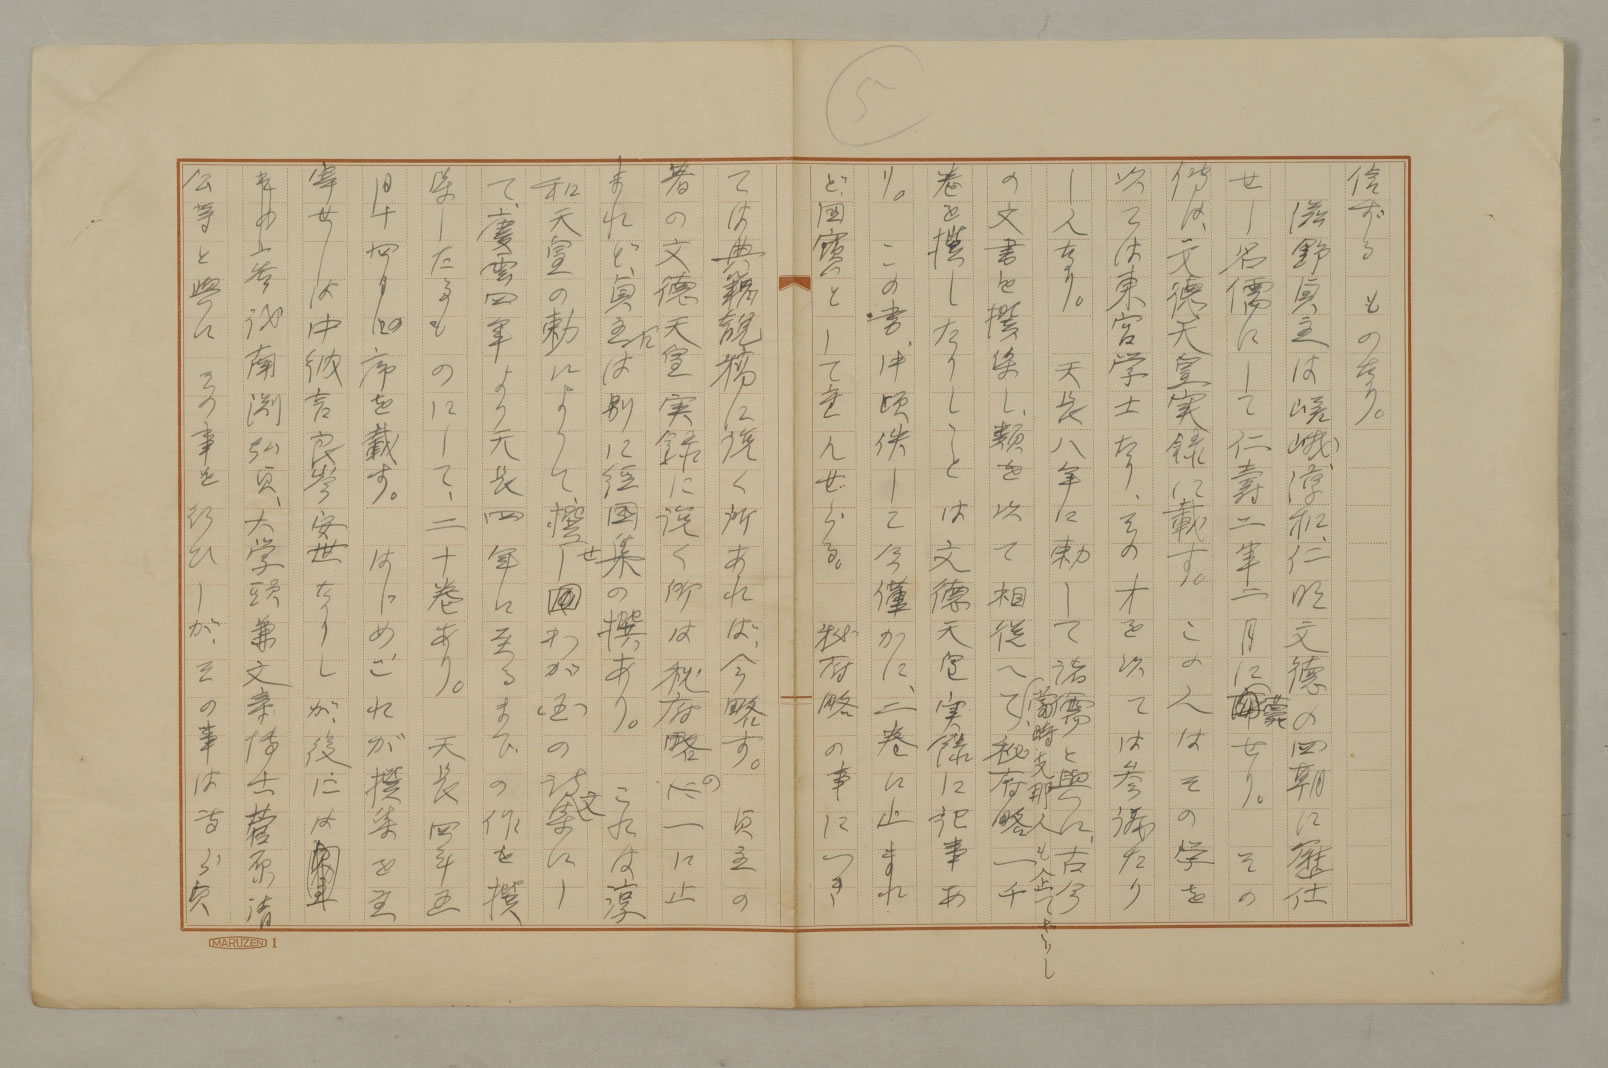 5
信ずるものなり。
滋野貞主は嵯峨、淳和、仁明、文德の四朝に歷仕
せし名儒にして仁壽二年二月に薨せり。その
傳は、文德天皇実録に載す。この人はその学を
以ては東宮学士なり、その才を以ては参議たり
し人なり。天長八年に勅して諸儒と與に、古今
の文書を撰集し、類を以て相從へて、秘府略一千
(當時支那人も企てざりし
卷を撰したりしことは文德天皇実録に記事あ
り。この書、中頃佚して今僅かに、二卷に止まれ
ど、国寶として重んぜらる。秘府略の事につき
ては典籍説稿に説く所あれば、今略す。貞主の
著の文德天皇実録に説く所は秘府略の一に止
まれど、貞主には別に經国集の撰あり。これは淳
和天皇の勅によりて、撰せしわが国の詩文集にし
て、慶雲四年より天長四年に至るまでの作を撰
集したるものにして、二十卷あり。天長四年五
月十四日の序を載す。はじめこれが撰集を主
宰せしは中納言良岑安世なりしが、後には
その上首は南淵弘貞、大学頭兼文章博士菅原清
公等と與にその事を行ひしが、その事は専ら貞
MARUZEN I